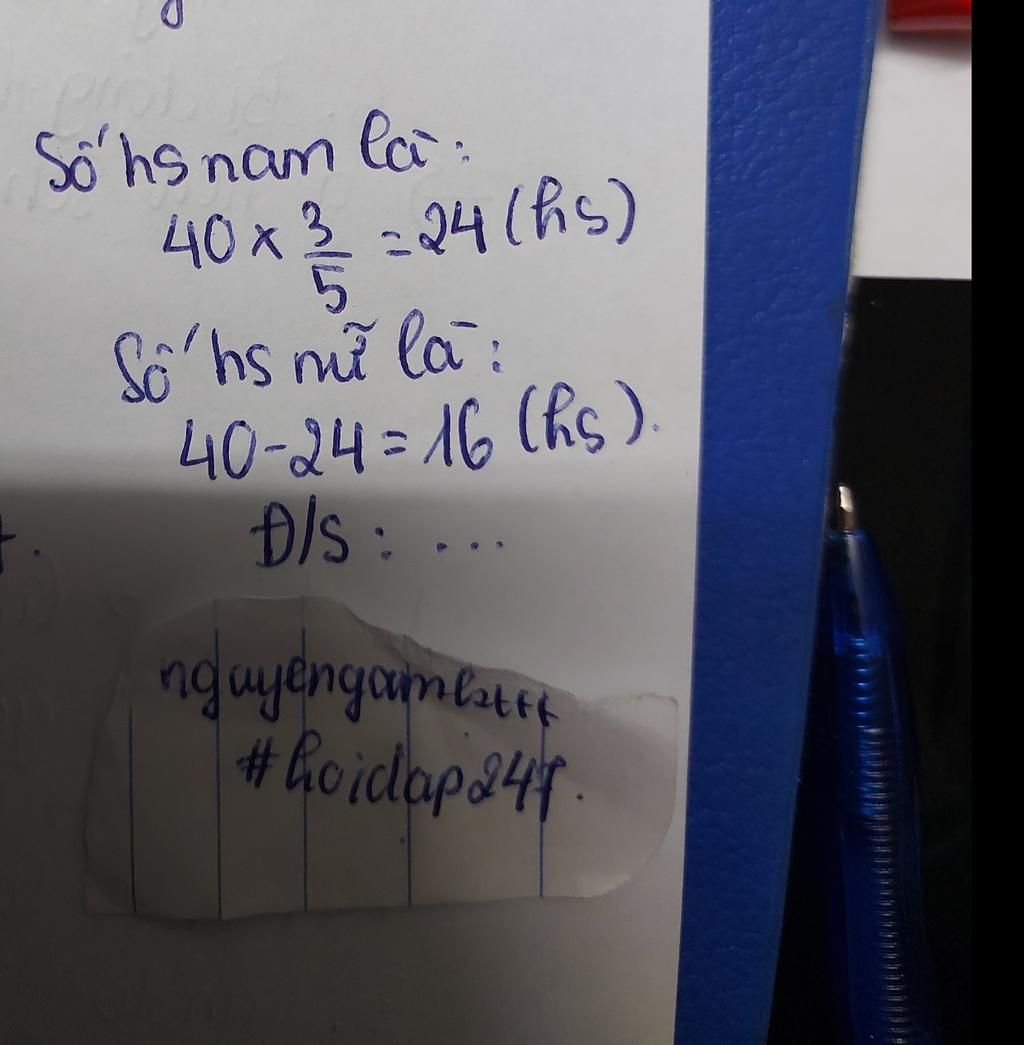 Số hs nam là:
40 × 3/5 = 24 (hs)
Số hs nữ là:
40 - 24 = 16 (hs).
Đ/S: ...
#hoidap247.